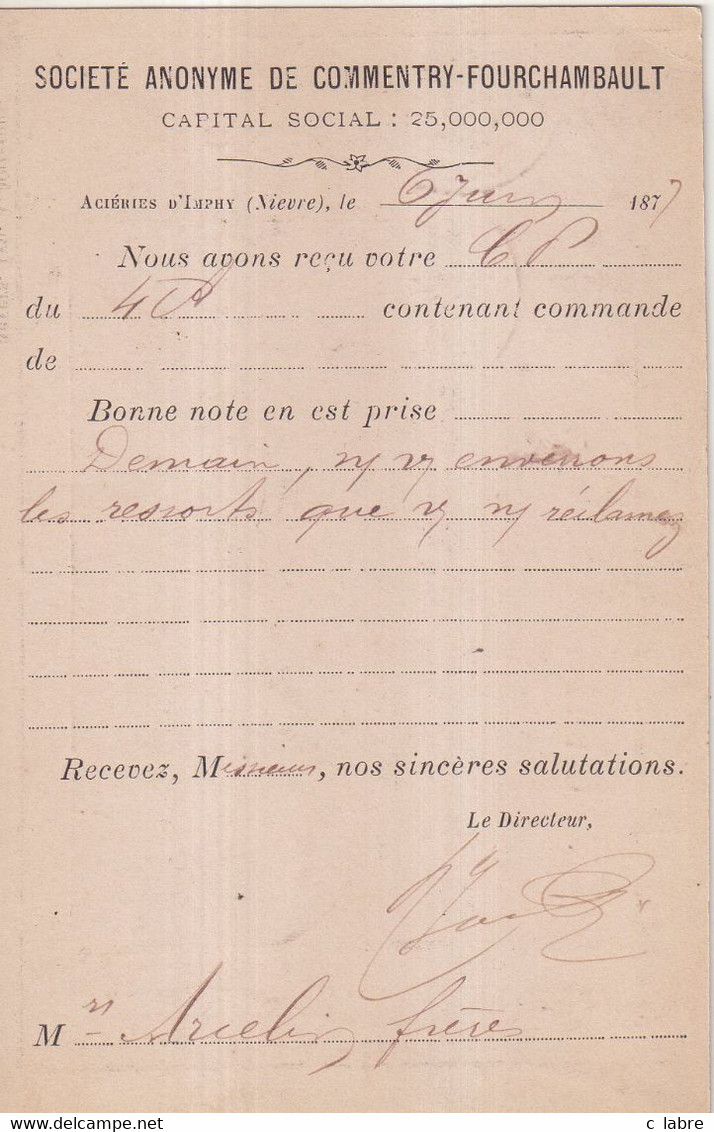 SOCIETÉ ANONYME DE COMMENTRY-FOURCHAMBAULT
CAPITAL SOCIAL : 25,000,000
ACIÉRIES D'IMPHY (Nievre), le 6 Juin 1877
Nous avons reçu votre CP
du 4 contenant commande
de
Bonne note en est prise
Demain, n/ v/ environs
les ressorts que v/ n/ réclamez
Recevez, Messieurs, nos sincères salutations.
Le Directeur,
Mrs Arcelin frères
c labre